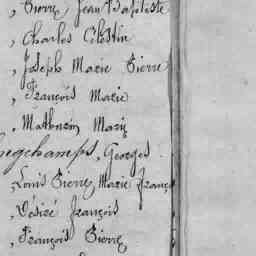 , Pierre Jean Baptiste
, Charles Célestin
, Joseph Marie Pierre
, François Marie
, Mathurin Marie
Georges
, Louis Pierre Marie Franç
, Désiré François
, François Pierre